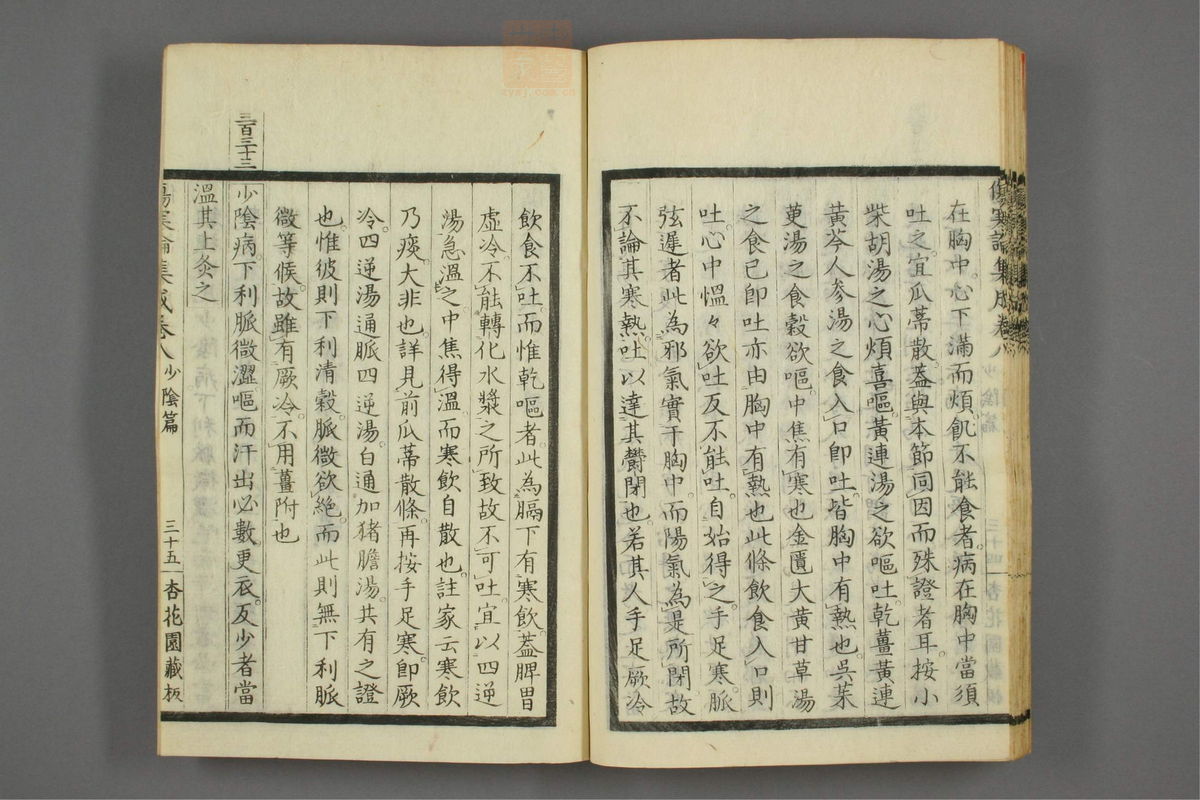 在胸中心下滿而煩飢不能食者病在胸中當須
吐之宜瓜蒂散蓋與本節同因而殊證者耳按小
柴胡湯之心煩喜嘔黃連湯之欲嘔吐乾薑黃連
黃芩人參湯之食入口即吐皆胸中有熱也吳茱
萸湯之食穀欲嘔中焦有寒也金匱大黃甘草湯
之食已即吐亦由胸中有熱也此條飲食入口則
吐心中慍々欲吐反不能吐自始得之手足寒脈
弦遲者此為邪氣實于胸中而陽氣為是所閉故
不論其寒熱吐以達其鬱閉也若其人手足厥冷
飲食不吐而惟乾嘔者此為膈下有寒飲蓋脾胃
虛冷不能轉化水漿之所致故不可吐宜以四逆
湯急溫之中焦得溫而寒飲自散也註家云寒飲
乃痰大非也詳見前瓜蒂散條再按手足寒即厥
冷四逆湯通脈四逆湯白通加猪膽湯其有之證
也惟彼則下利清穀脈微欲絶而此則無下利脈
微等候故雖有厥冷不用薑附也
三百三十三
少陰病下利脈微澀嘔而汗出必數更衣反少者當
溫其上灸之
傷寒論集成卷八 少陰篇 三十五 杏花園藏板
zysj.com.cn